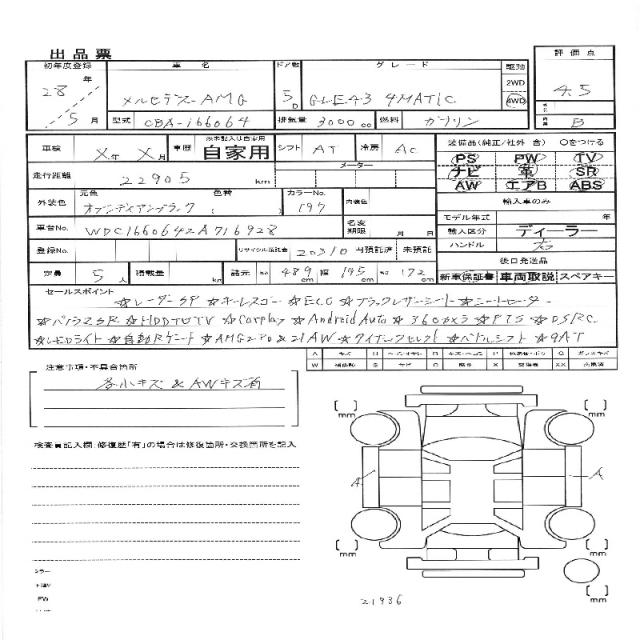 出品票
初年度登録 車名 ドア数 グレード 駆動 評価点
28年 5月 メルセデスAMG 5D GLE43 4MATIC 2WD 4WD 4.5
型式 CBA-166064 排気量 3000 cc 燃料 ガソリン B
車検 X年 X月 車歴 自家用 シフト AT 冷房 AC 装備品(純正/社外 含) 〇をつける
走行距離 22905 km メーター
PS PW TV
ナビ 革 SR
AW エアB ABS
外装色 元色 オブシディアンブラック 色替 ( ) カラーNo. 197 内装色
輸入車のみ
モデル年式 年
車台No. WDC1660642A716928 名変期限 月 日
輸入区分 ディーラー
登録No. リサイクル預託金 20310 預託済 未預託
ハンドル 右
定員 5人 積載量 kg 諸元 489 幅 195 172 cm
後日発送品
新車保証書 車両取説 スペアキー
セールスポイント
☆レーダーSP ☆キーレスゴー ☆ECO ☆ブラックレザーシート ☆シートヒーター
☆パノラマSR ☆HDDナビTV ☆Carplay ☆Android Auto ☆360°カメラ ☆PTS ☆DSRC
☆LEDライト ☆自動Rゲート ☆AMGエアロ&21AW ☆ダイナミックセレクト ☆パドルシフト ☆9AT
注意事項・不具合箇所
各小キズ & AWキズ有
検査員記入欄:修復歴「有」の場合は修復箇所・交換箇所を記入
mm mm
A A
mm mm
mm
21936